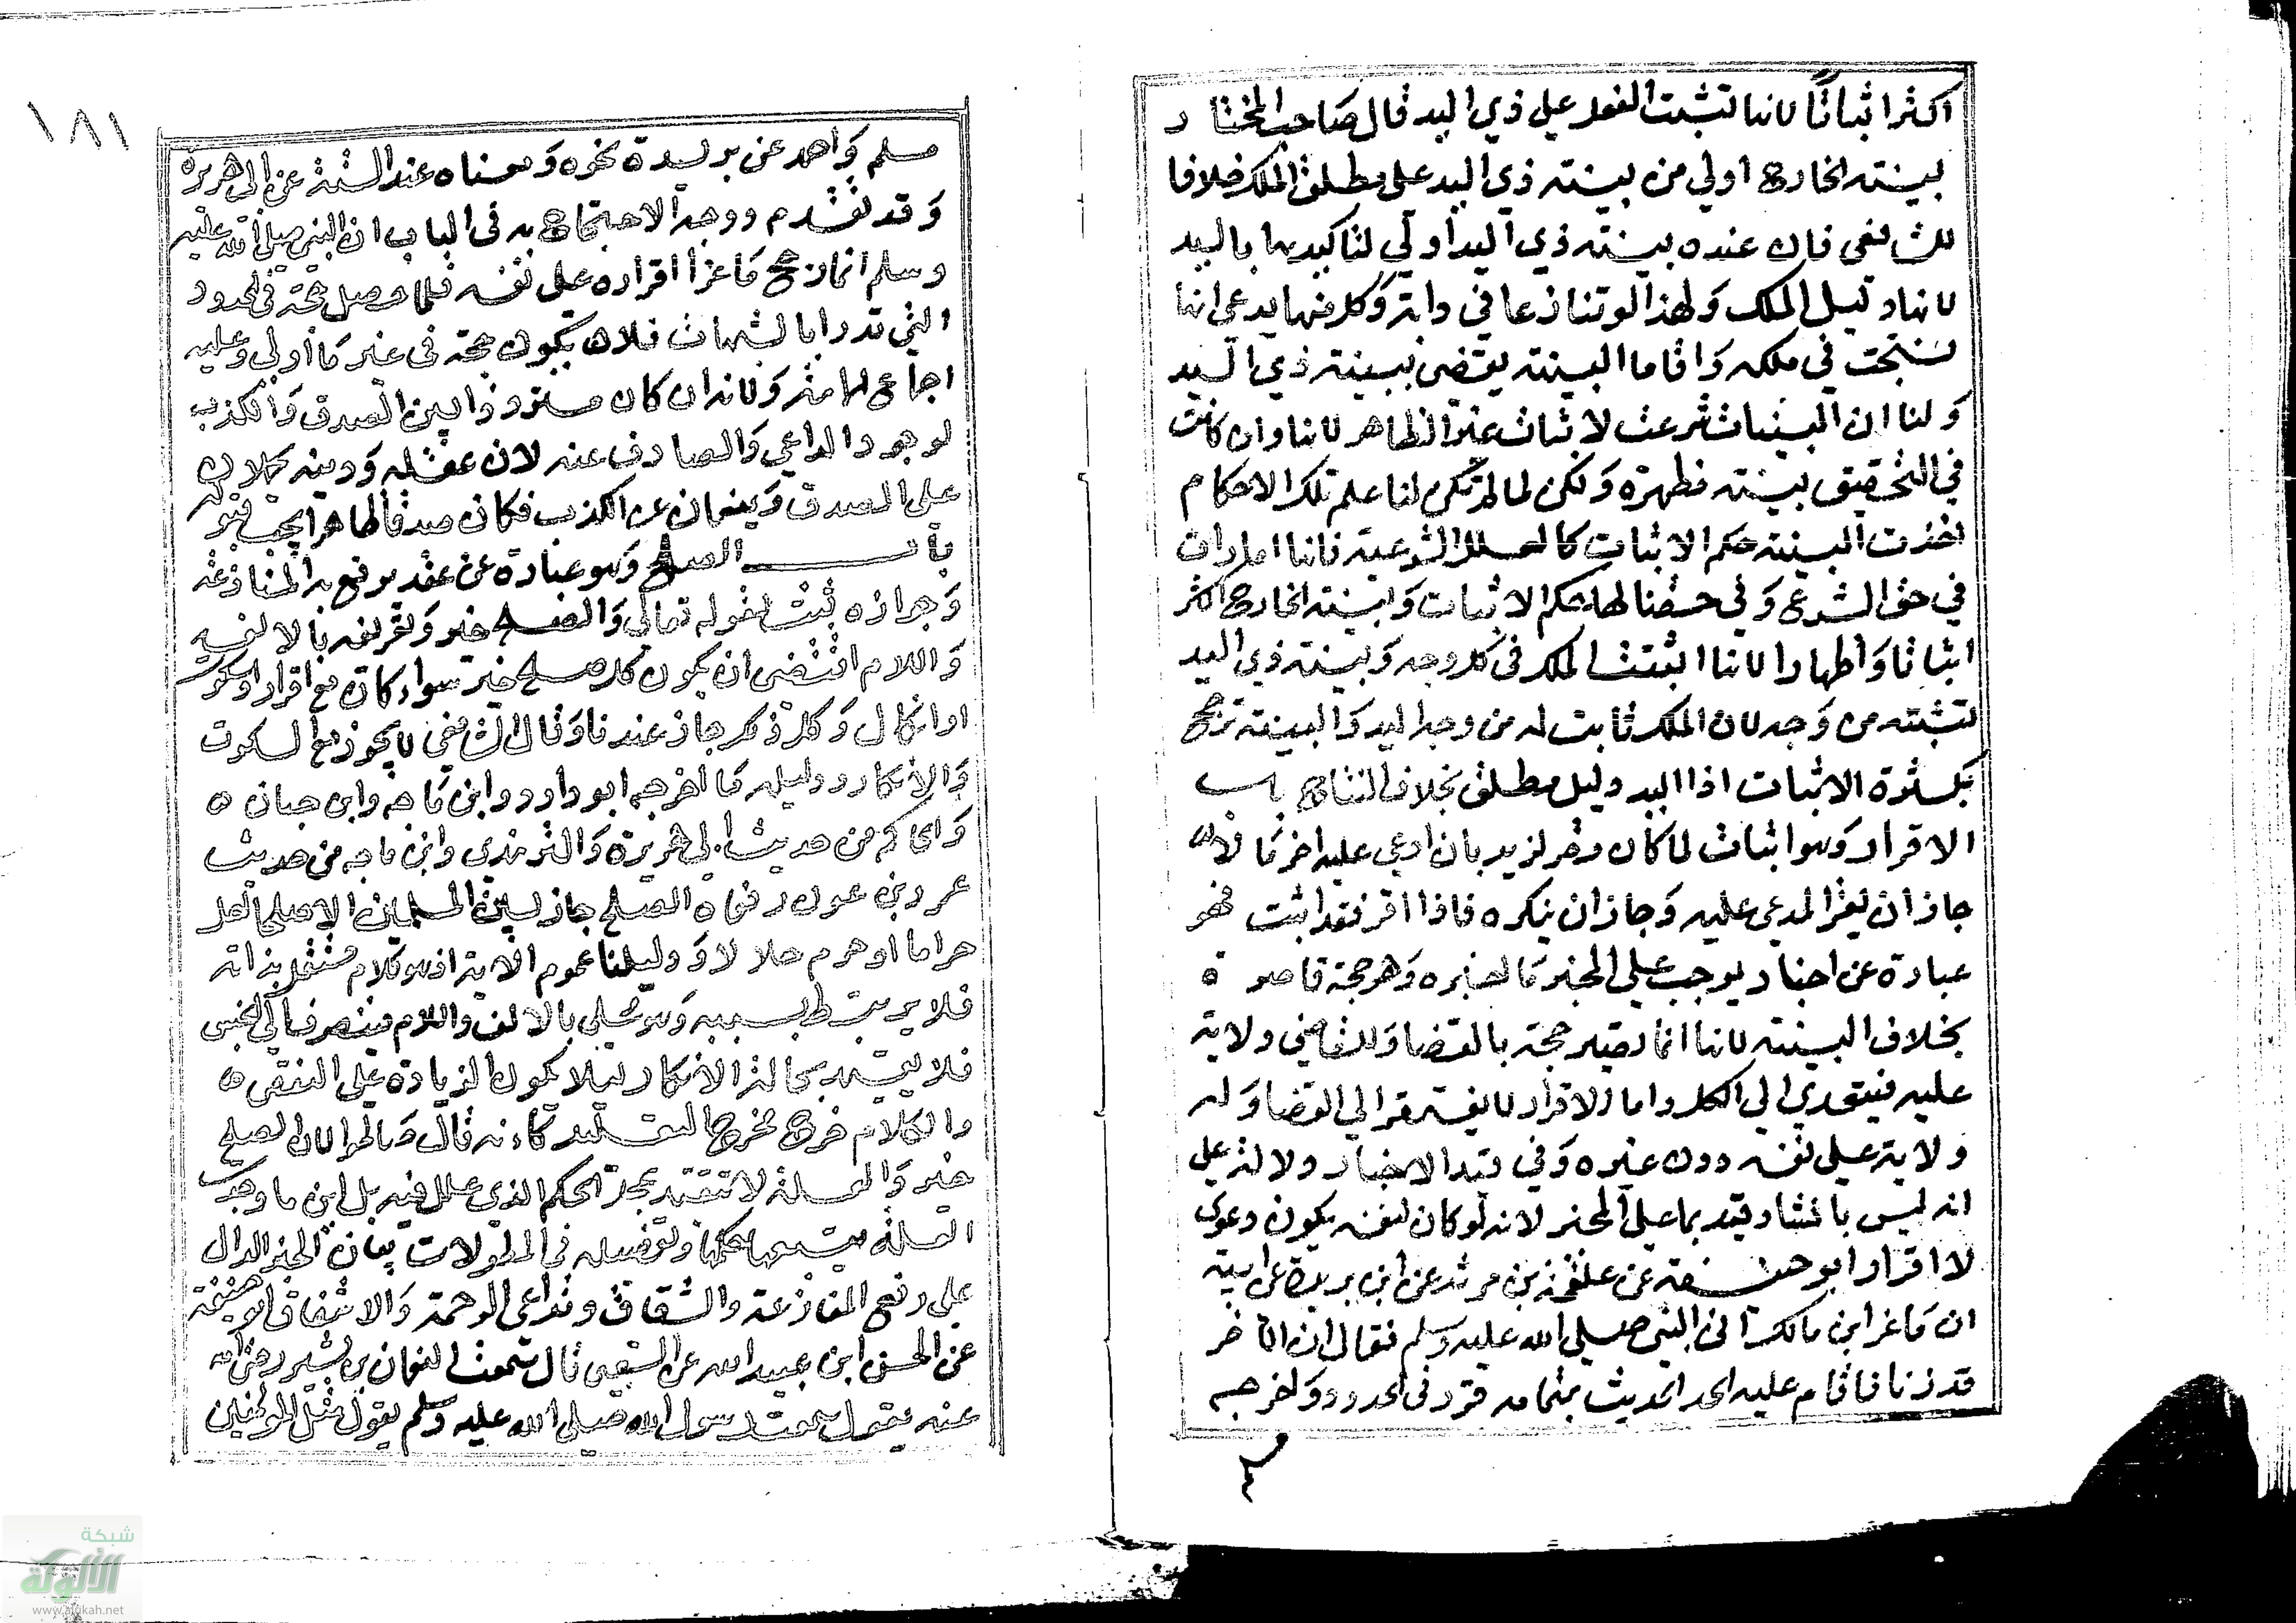 اكثر اثباتا لانها تثبت الفعل علي ذي اليد قال صاحب المختار
بينته الخارج اولي من بينته ذي اليد علي مطلق الملك خلافا
للشافعي فان عنده بينته ذي اليد أولي لتاكيدها باليد
لانها دليل الملك ولهذا لو تنازعا في دابة وكل منهما يدعي انها
نتجت في ملكه واقاما البينته يقضي ببينته ذي اليد
ولنا ان البينات شرعت لاثبات غير الظاهر لانها وان كانت
في التحقيق بينته مظهرة ولكن لما لم تكن لنا علم تلك الاحكام
اخذت البينته حكم الاثبات كالعلل الشرعية فانها امارات
في حق الشرع وفي حقنا لها حكم الاثبات وبينته الخارج اكثر
اثباتا واظهارا لانها اثبتت الملك في كل وجه وبينته ذي اليد
تثبته من وجه لان الملك ثابت له من وجه اليد والبينته ترجح
بكثرة الاثبات اذا اليد دليل مطلق بخلاف النتاج باب
الاقرار وهو اثبات لما كان
جاز ان يقر المدعي عليه وجاز ان ينكره فاذا اقر فقد اثبت فهو
عبارة عن اخبار يوجب علي المخبر ما اخبره وهو حجة قاصرة
بخلاف البينته لانها انما تصير حجة بالقضا وللقاضي ولاية
عليه فيتعدي الي الكل واما الاقرار لا يفتقر الي القضا وله
ولاية علي نفسه دون غيره وفي قيد الاخبار دلالة علي
انه ليس بانشاء وقيد بما علي المخبر لانه لو كان لنفسه يكون دعوي
لا اقرار ابو حنيفة عن علقمة بن مرثد عن ابن بريدة عن ابيه
ان ماعز ابن مالك اتي النبي صلي الله عليه وسلم فقال ان الاخر
قد زنا فاقام عليه الحد الحديث بتمامه قد في الحدود واخرجه
م
١٨١
مسلم واحمد عن بريدة نحوه ومعناه عند الستة عن ابي هريرة
وقد تقدم ووجه الاحتجاج به في الباب ان النبي صلي الله عليه
وسلم انما رجم ماعزا اقراره علي نفسه فلما حصل حجة في الحدود
التي تدرا بالشبهات فلان يكون حجة في غيرها أولي وعليه
اجماع الامة ولانه ان كان مترددا بين الصدق والكذب
لوجود الداعي والصارف عنه لان عقله ودينه يحملان
علي الصدق ويمنعان عن الكذب فكان صدقا ظاهرا يجب قبوله
باب الصلح وهو عبارة عن عقد يرفع به المنازعة
وجوازه ثبت لقوله تعالي والصلح خير وتعريفه بالالف
واللام اقتضي ان يكون كل صلح خير سواء كان مع اقرار او سكوت
او انكار وكل ذلك جاز عندنا وقال الشافعي لا يجوز مع السكوت
والانكار ودليله ما اخرجه ابو داود وابن ماجه وابن حبان
والحاكم من حديث ابي هريرة والترمذي وابن ماجه من حديث
عمرو بن عوف رفعاه الصلح جاز بين المسلمين الا صلحا احل
حراما او حرم حلالا ودليلنا عموم الاية اذ هو كلام مستقل بذاته
فلا يرتبط بسببه وهو محلي بالالف واللام فينصرف الي الجنس
فلا يقيد بحالة الانكار ليلا يكون الزيادة علي النص
والكلام خرج مخرج التعليل كانه قال صالحوا لان الصلح
خير والعلة لا تتقيد بمحل الحكم الذي علل فيه بل اين ما وجدت
العلة يتبعها حكمها وتفصيله في المطولات بيان الخبر الدال
علي رفع المنازعة والشقاق وتداعي الرحمة والاشفاق ابو حنيفة
عن الحسن ابن عبيد الله عن الشعبي قال سمعت النعمان بن بشير رضي الله
عنه يقول سمعت رسول الله صلي الله عليه وسلم يقول مثل المومنين
شبكة
الألوكة
www.alukah.net